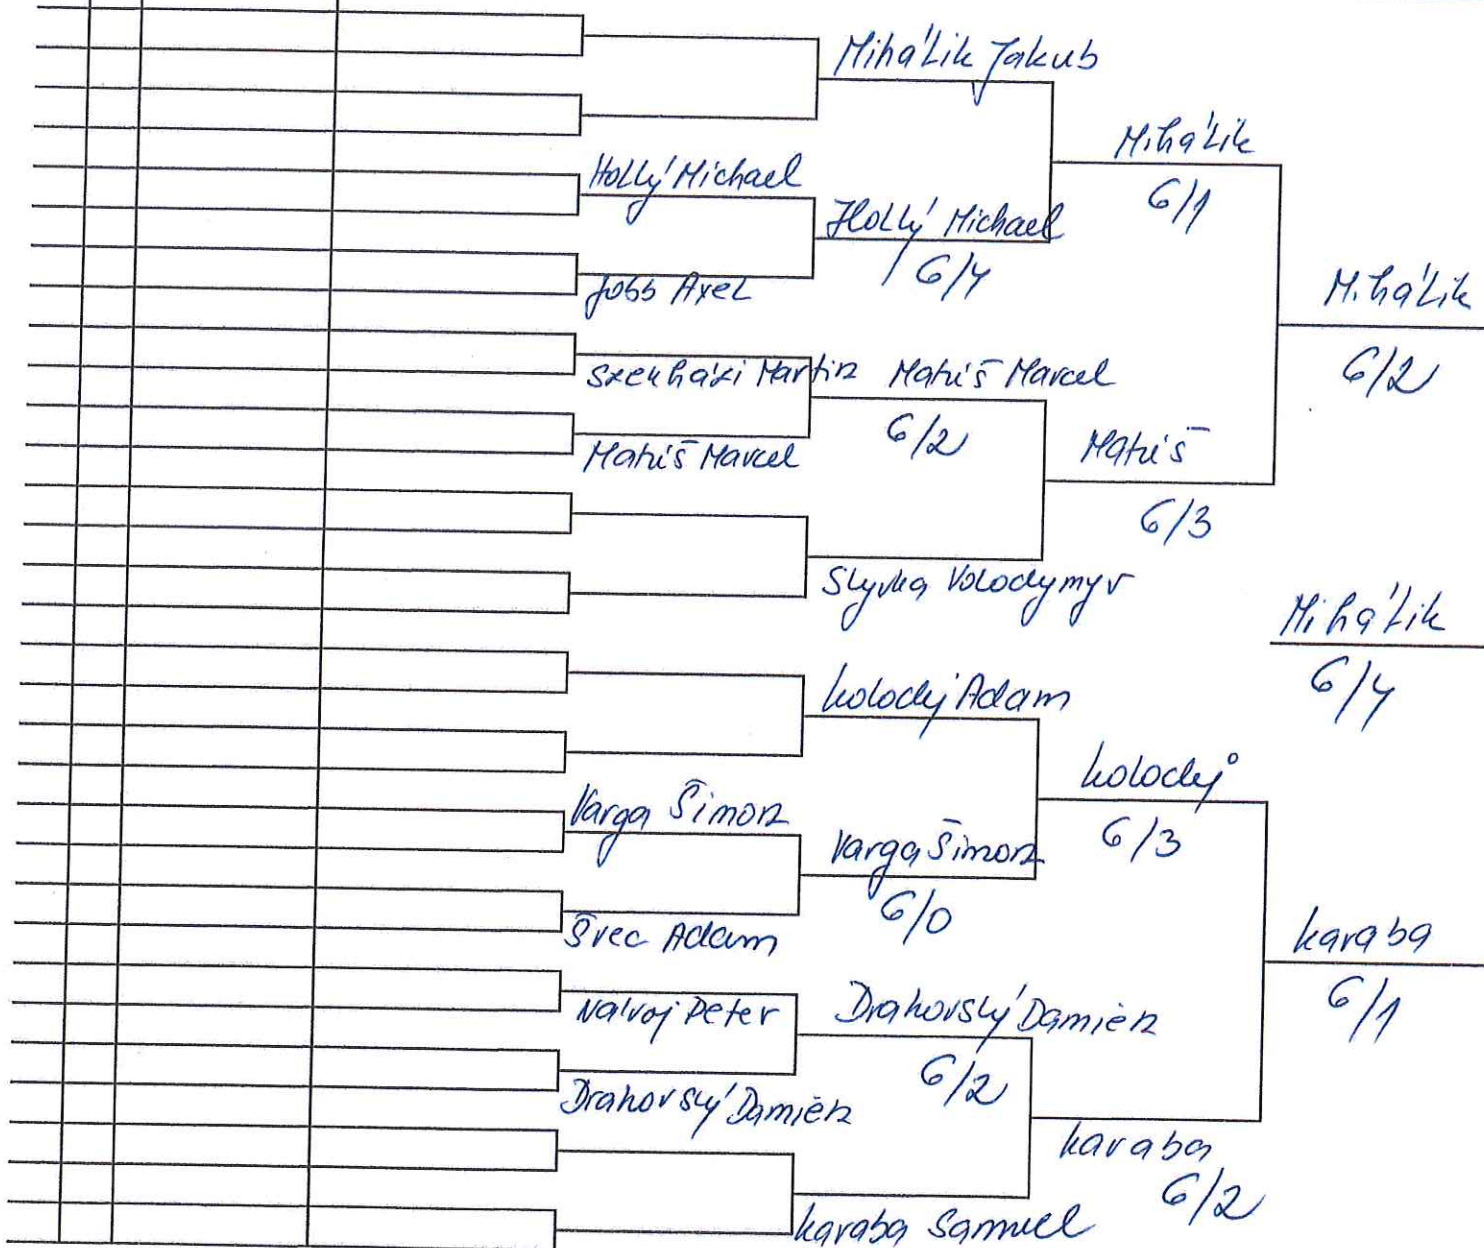 Mihálik Jakub
Mihálik
6/1
Hollý Michael
Hollý Michael
6/4
Jobb Axel
Mihálik
6/2
Szenházi Martin
Matúš Marcel
6/2
Matúš Marcel
Matúš
6/3
Slyvka Volodymyr
Mihálik
6/4
Kolodej Adam
Kolodej
6/3
Varga Šimon
Varga Šimon
6/0
Švec Adam
Karaba
6/1
Peter
Drahovský Damién
6/2
Drahovský Damién
Karaba
6/2
Karaba Samuel